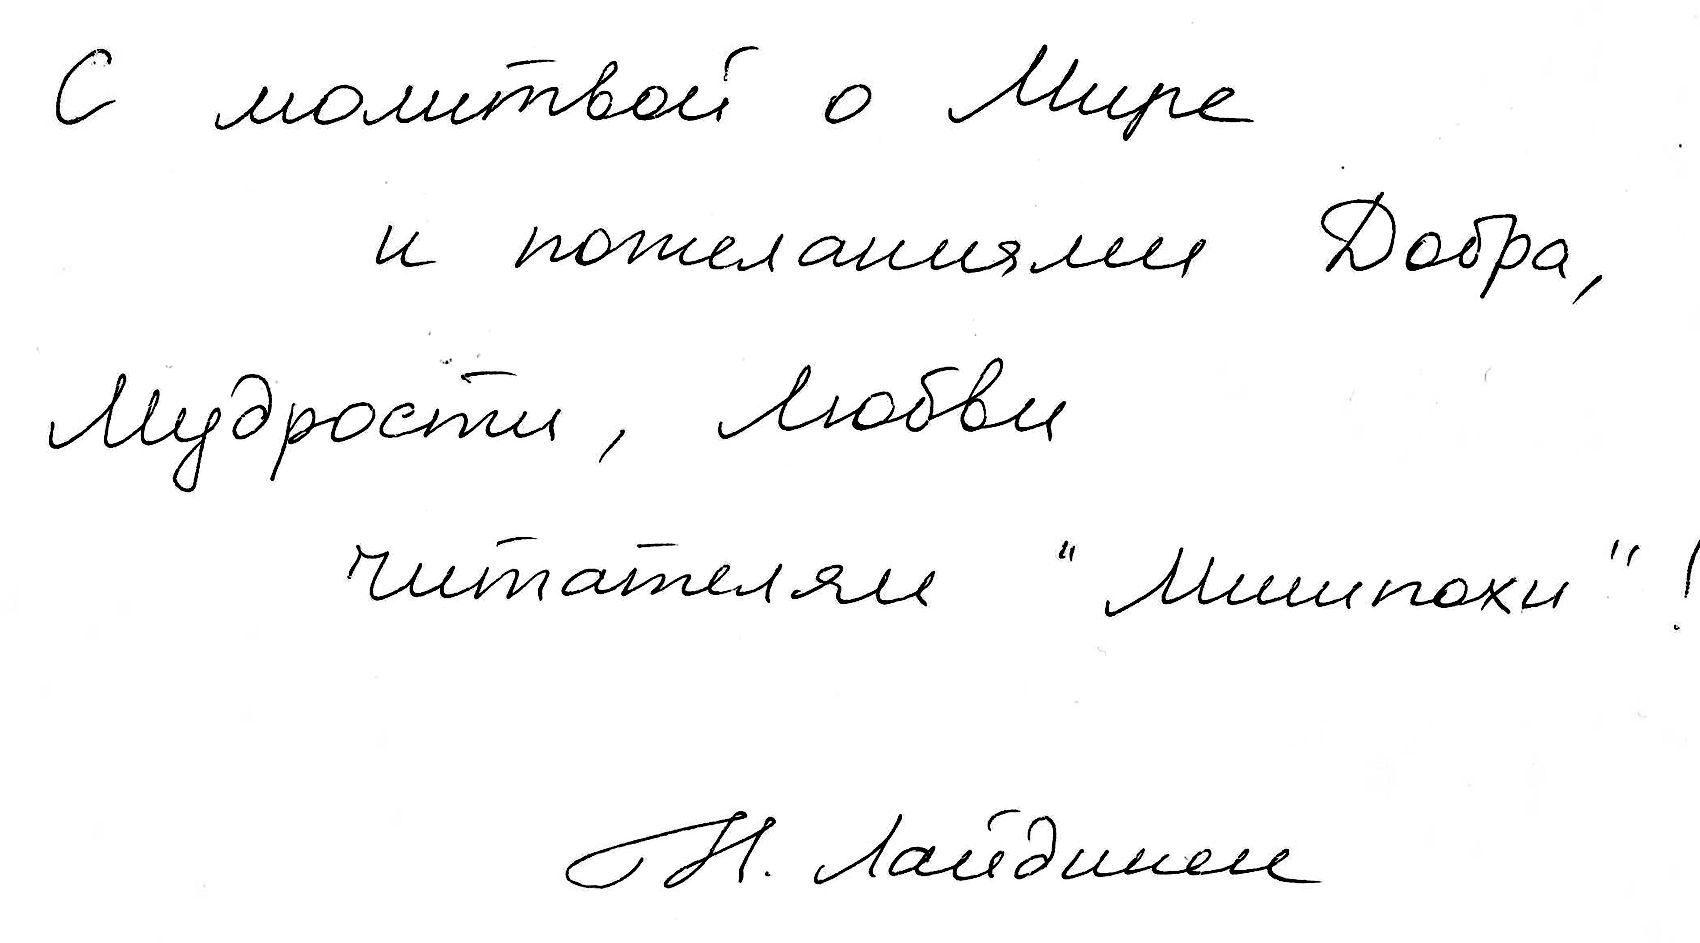 С молитвой о Мире
и пожеланиями Добра,
Мудрости, Любви
читателям "Мишпохи"!
Н. Лайдинен